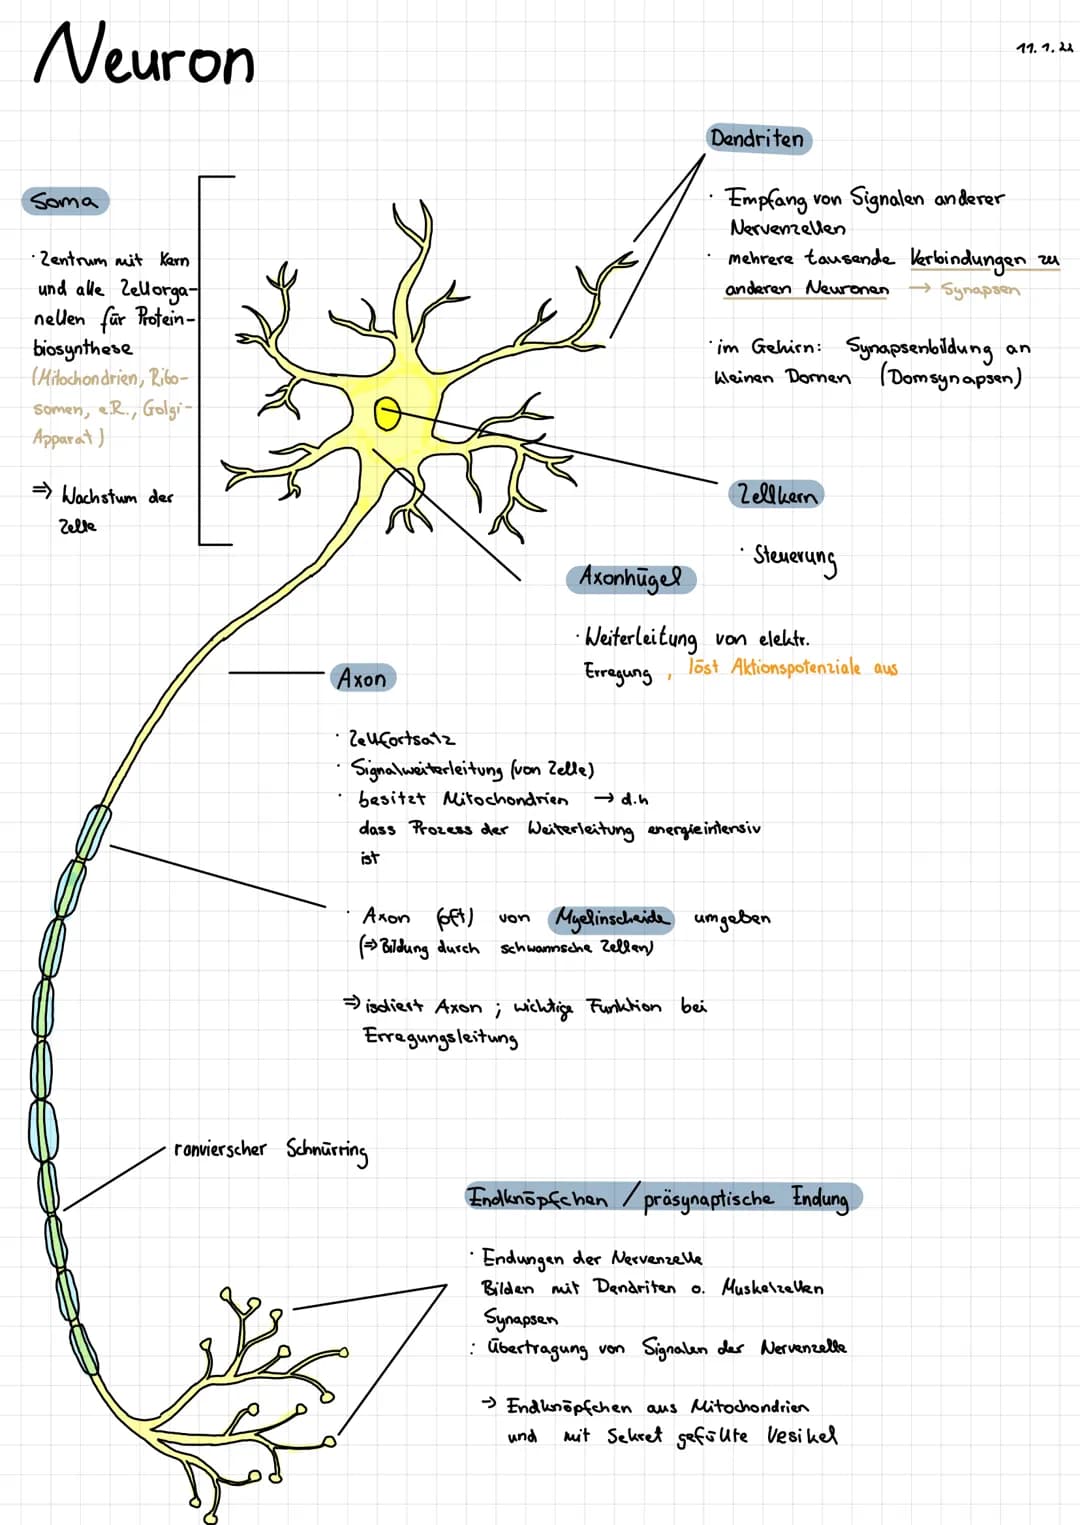 Neuron
11.1.22
Dendriten
· Empfang von Signalen anderer
Nervenzellen
· mehrere tausende Verbindungen zu
anderen Neuronen → Synapsen
· im Gehirn: Synapsenbildung an
kleinen Dornen (Dornsynapsen)
Soma
· Zentrum mit Kern
und alle Zellorga-
nellen für Protein-
biosynthese
(Mitochondrien, Ribo-
somen, e.R., Golgi-
Apparat)
⇒ Wachstum der
Zelle
Zellkern
· Steuerung
Axonhügel
· Weiterleitung von elektr.
Erregung, löst Aktionspotenziale aus
Axon
· Zellfortsatz
· Signalweiterleitung (von Zelle)
· besitzt Mitochondrien → d.h
dass Prozess der Weiterleitung energieintensiv
ist
· Axon (oft) von Myelinscheide umgeben
(⇒ Bildung durch schwannsche Zellen)
⇒ isoliert Axon ; wichtige Funktion bei
Erregungsleitung
ranvierscher Schnürring
Endknöpfchen / präsynaptische Endung
· Endungen der Nervenzelle
Bilden mit Dendriten o. Muskelzellen
Synapsen
: Übertragung von Signalen der Nervenzelle
→ Endknöpfchen aus Mitochondrien
und mit Sekret gefüllte Vesikel